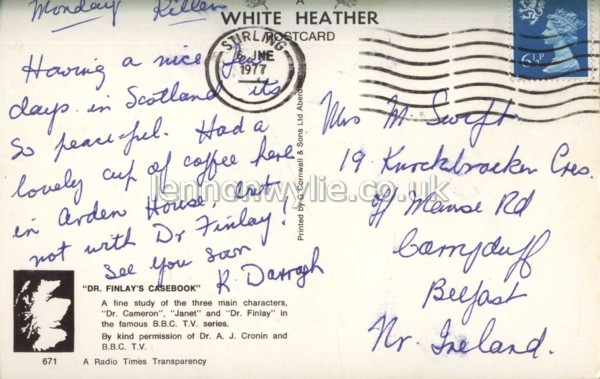 Monday Killen
A
WHITE HEATHER
POSTCARD
STIRLING
JNE
1977
6½P
Having a nice few
days in Scotland its
so peaceful. Had a
lovely cup of coffee here
in Arden House, but
not with Dr Finlay!
See you soon
K. Darragh
Printed by G. Cornwall & Sons Ltd Aberd
Mrs M. Swift
19 Knockbracken Cres.
off Manse Rd
Carryduff
Belfast
Nr. Ireland.
lennonwylie.co.uk
"DR. FINLAY'S CASEBOOK"
A fine study of the three main characters,
"Dr. Cameron", "Janet" and "Dr. Finlay" in
the famous B.B.C. T.V. series.
By kind permission of Dr. A. J. Cronin and
B.B.C. T.V.
671 A Radio Times Transparency